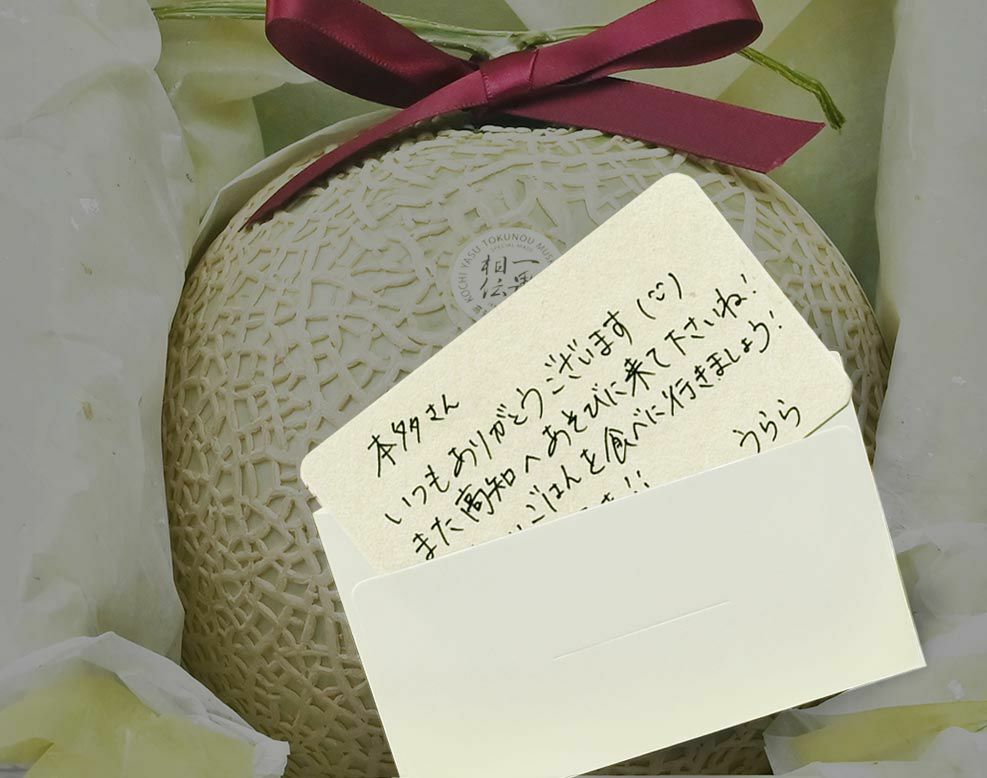 KOCHI YASU TOKUNOU MUS
SPECIAL MADE
一
相伝
本多さん
いつもありがとうございます(◡̈)
また高知へあそびに来て下さいね!
ごはんを食べに行きましょう!
うらら